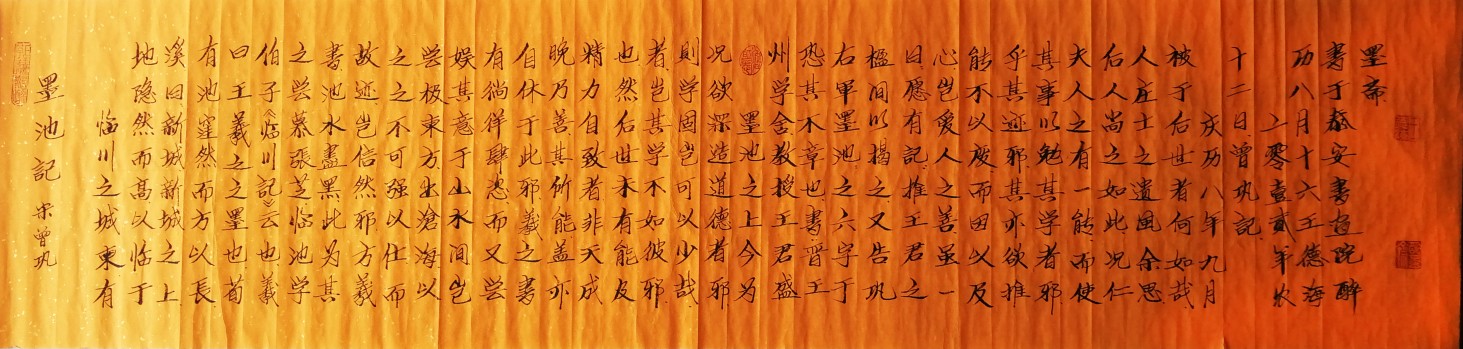 墨池記 宋曾巩
临川之城東有
地隐然而高以临于
溪曰新城新城之上
有池窪然而方以長
曰王羲之之墨也荀
伯子《临川記》云也羲
之尝慕張芝临池学
書池水盡黑此为其
故迹岂信然邪方羲
之之不可强以仕而
尝极東方出滄海以
娱其意于山水间岂
有徜徉肆恣而又尝
自休于此邪羲之書
晚乃善其所能盖亦
精力自致者非天成
也然后世未有能及
者岂其学不如彼邪
则学固岂可以少哉
况欲深造道德者邪
墨池之上今为
州学舍教授王君盛
恐其不章也書晋王
右軍墨池之六字于
楹间以揭之又告巩
曰愿有記推王君之
心岂爱人之善虽一
能不以废而因以及
乎其迹邪其亦欲推
其事以勉其学者邪
夫人之有一能而使
后人尚之如此况仁
人庄士之遗風余思
被于后世者何如哉
庆历八年九月
十二日曾巩記
二零壹贰年农
历八月十六王德海
書于泰安書画院醉
墨斋